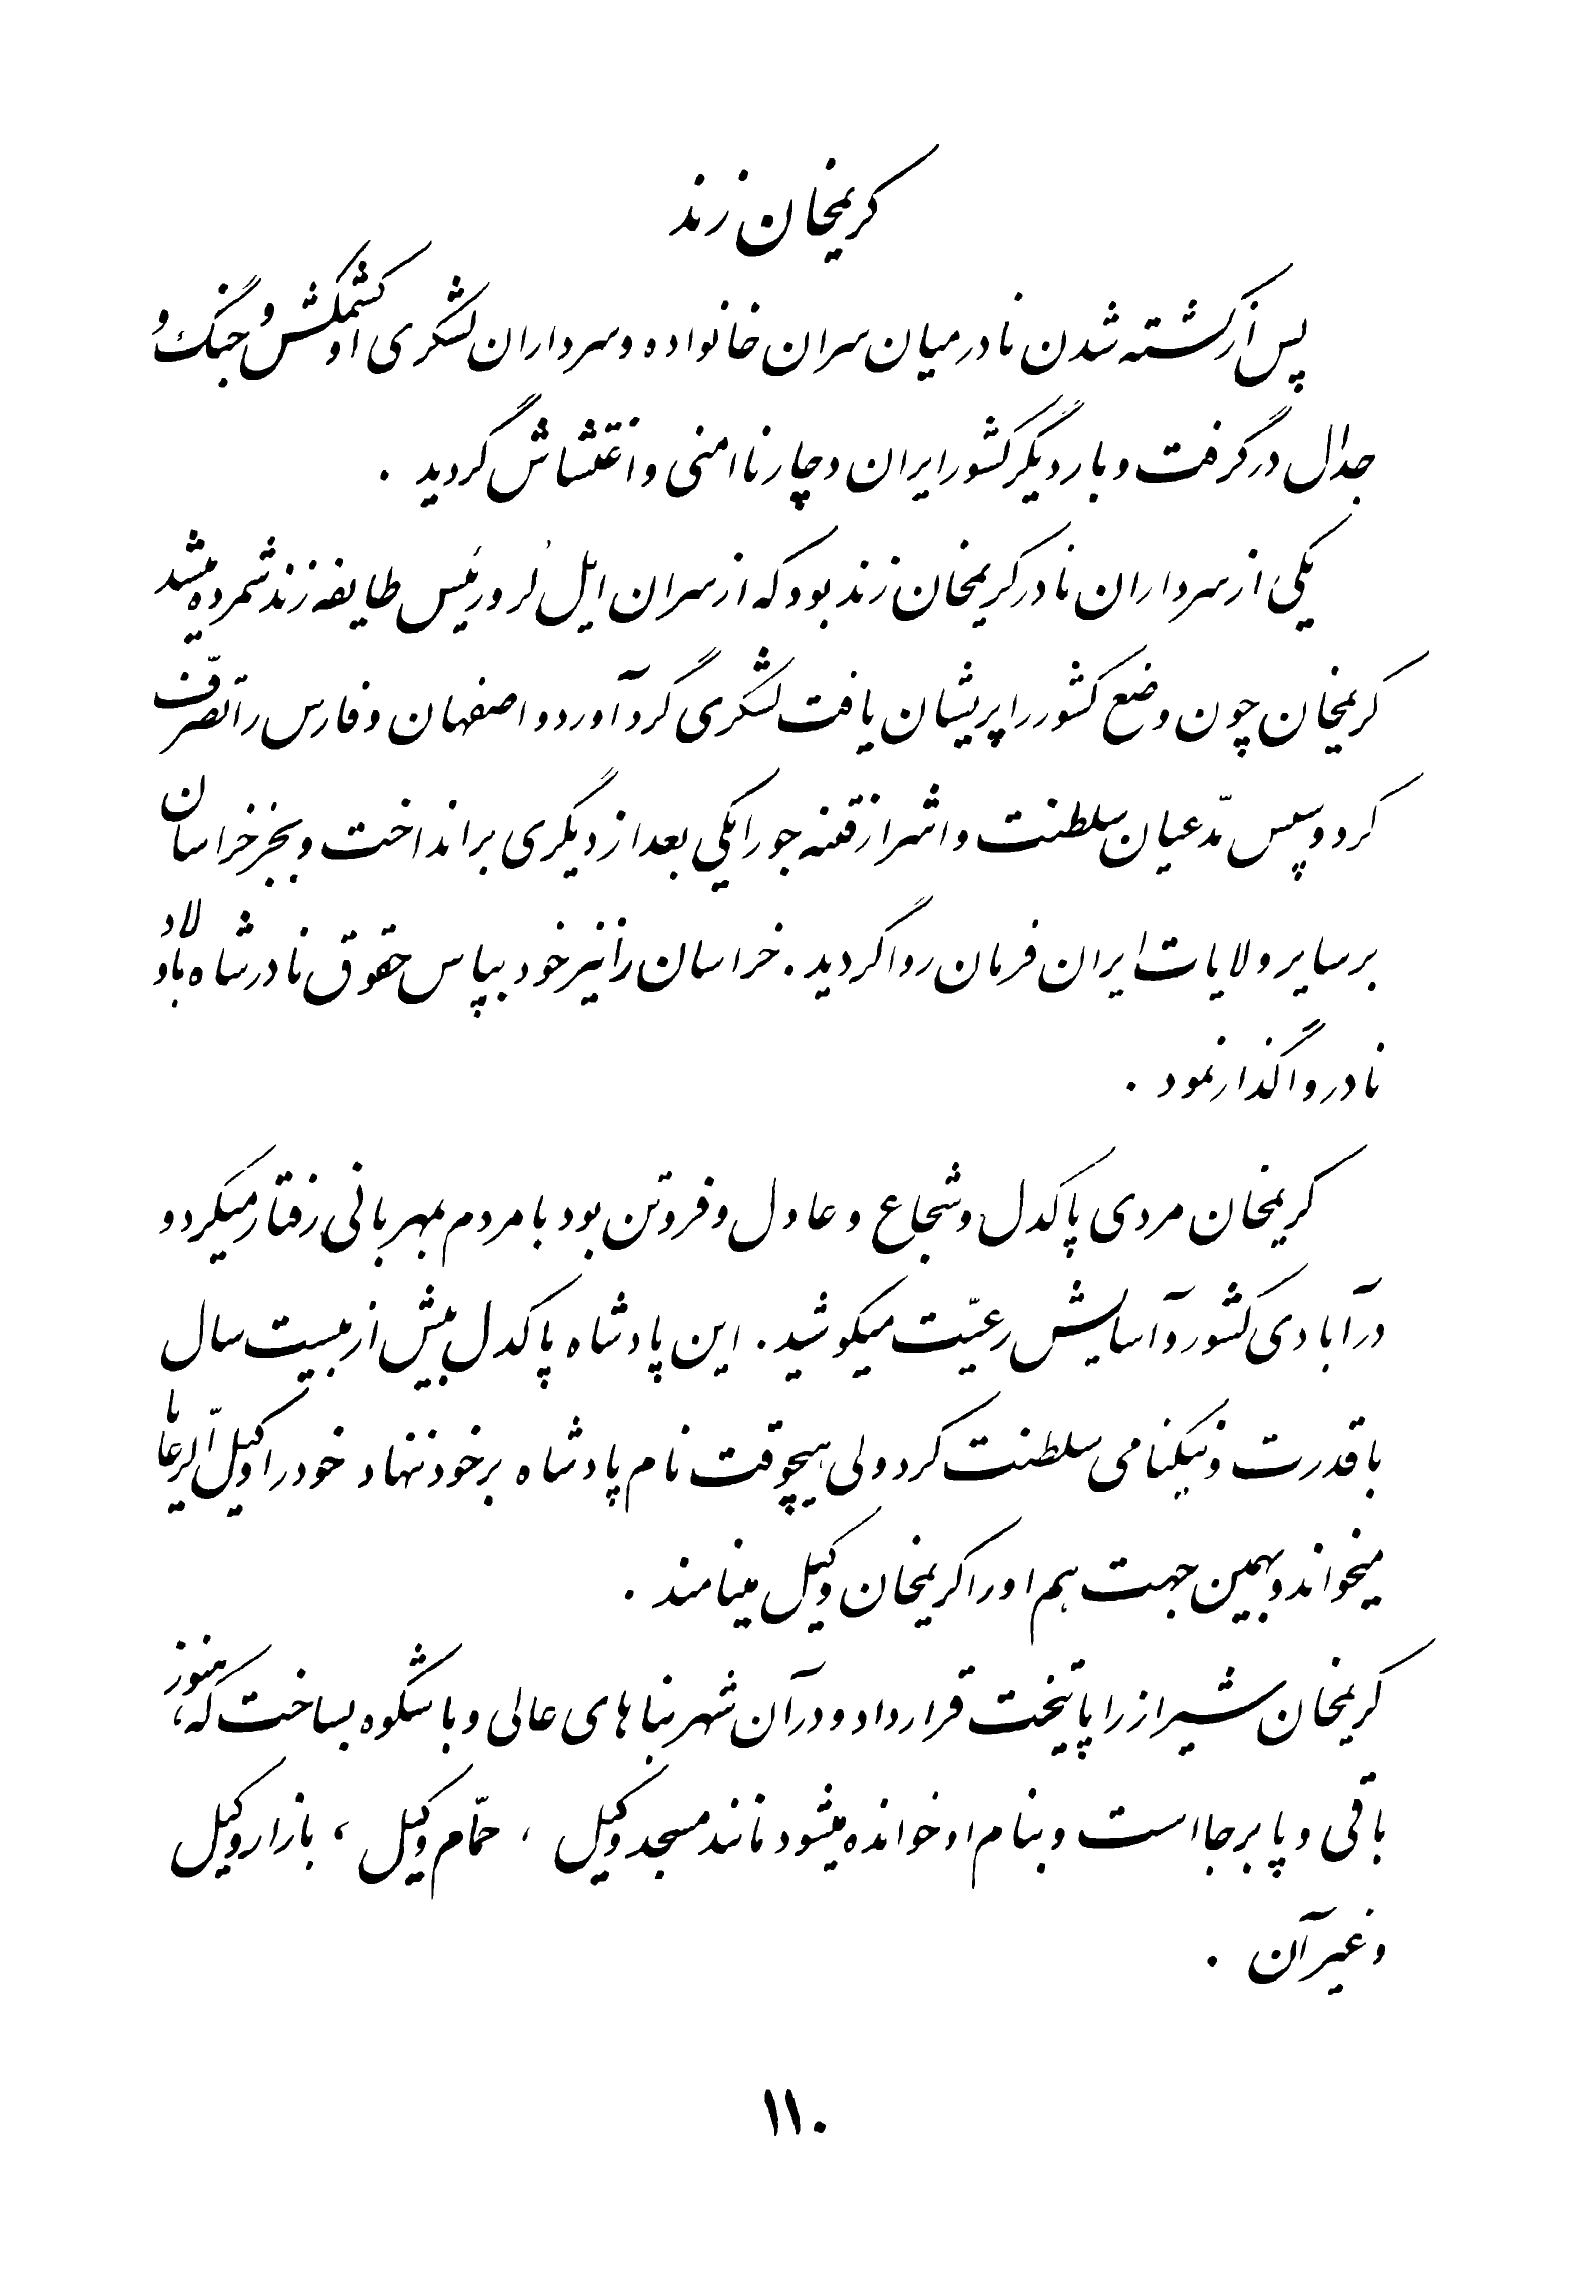 کریمخان زند
پس از کشته شدن نادر میان سران خانواده و سرداران لشکری او کشمکش و جنگ و
جدال درگرفت و بار دیگر کشور ایران دچار ناامنی و اغتشاش گردید .
یکی از سرداران نادر کریمخان زند بود که از سران ایل لُر و رئیس طایفه زند شمرده میشد
کریمخان چون وضع کشور را پریشان یافت لشکری گرد آورد و اصفهان و فارس را تصرّف
کرد و سپس مدّعیان سلطنت و اشرار فتنه جو را یکی بعد از دیگری برانداخت و بجز خراسان
بر سایر ولایات ایران فرمان روا گردید . خراسان را نیز خود بپاس حقوق نادرشاه باولاد
نادر واگذار نمود .
کریمخان مردی پاکدل و شجاع و عادل و فروتن بود با مردم بمهربانی رفتار میکرد و
در آبادی کشور و آسایش رعیّت میکوشید . این پادشاه پاکدل بیش از بیست سال
با قدرت و نیکنامی سلطنت کرد ولی هیچوقت نام پادشاه بر خود ننهاد خود را وکیل الرّعایا
میخواند و بهمین جهت هم او را کریمخان وکیل مینامند .
کریمخان شیراز را پایتخت قرار داد و در آن شهر بناهای عالی و باشکوه بساخت که هنوز
باقی و پابرجا است و بنام او خوانده میشود مانند مسجد وکیل ، حمّام وکیل ، بازار وکیل
و غیر آن .
۱۱۰